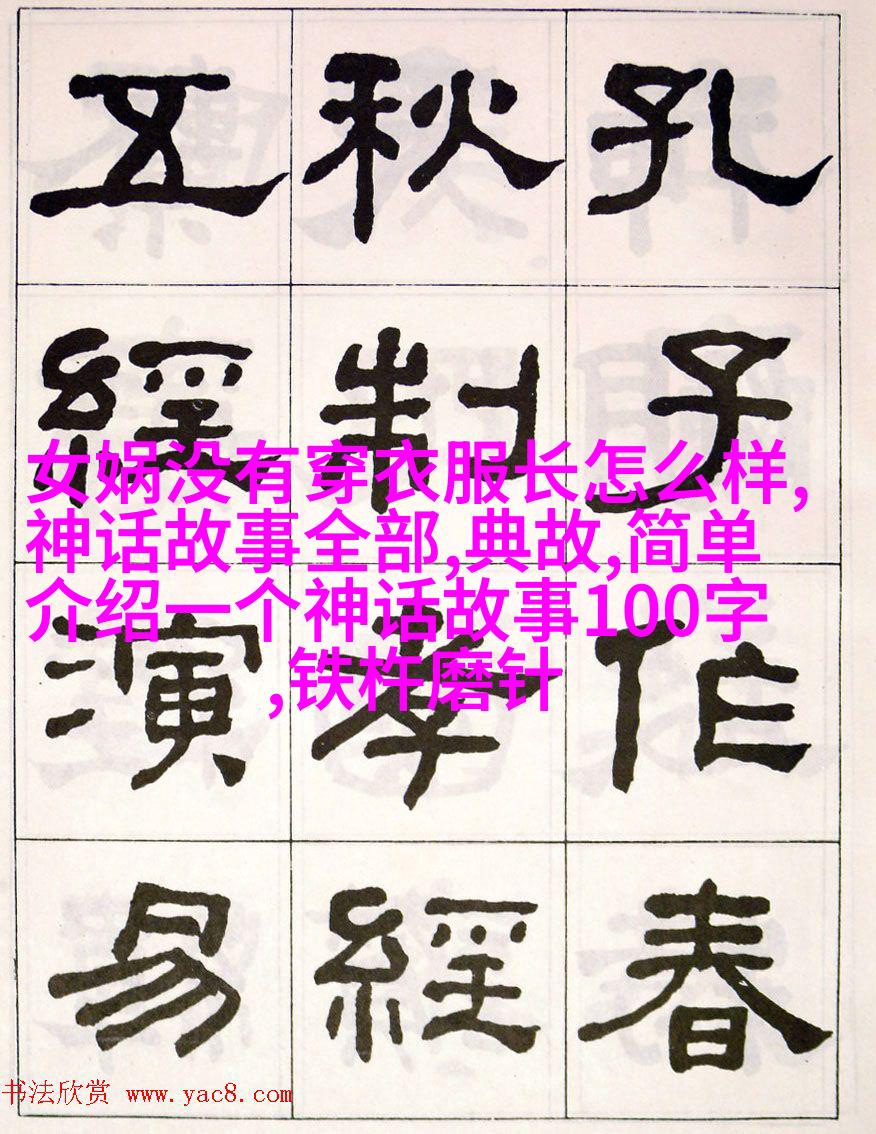 孔子作春
秋制孝經
五經演易
女娲没有穿衣服长怎么样,
神话故事全部,典故,简单
介绍一个神话故事100字
,铁杵磨针
书法欣赏 www.yac8.com